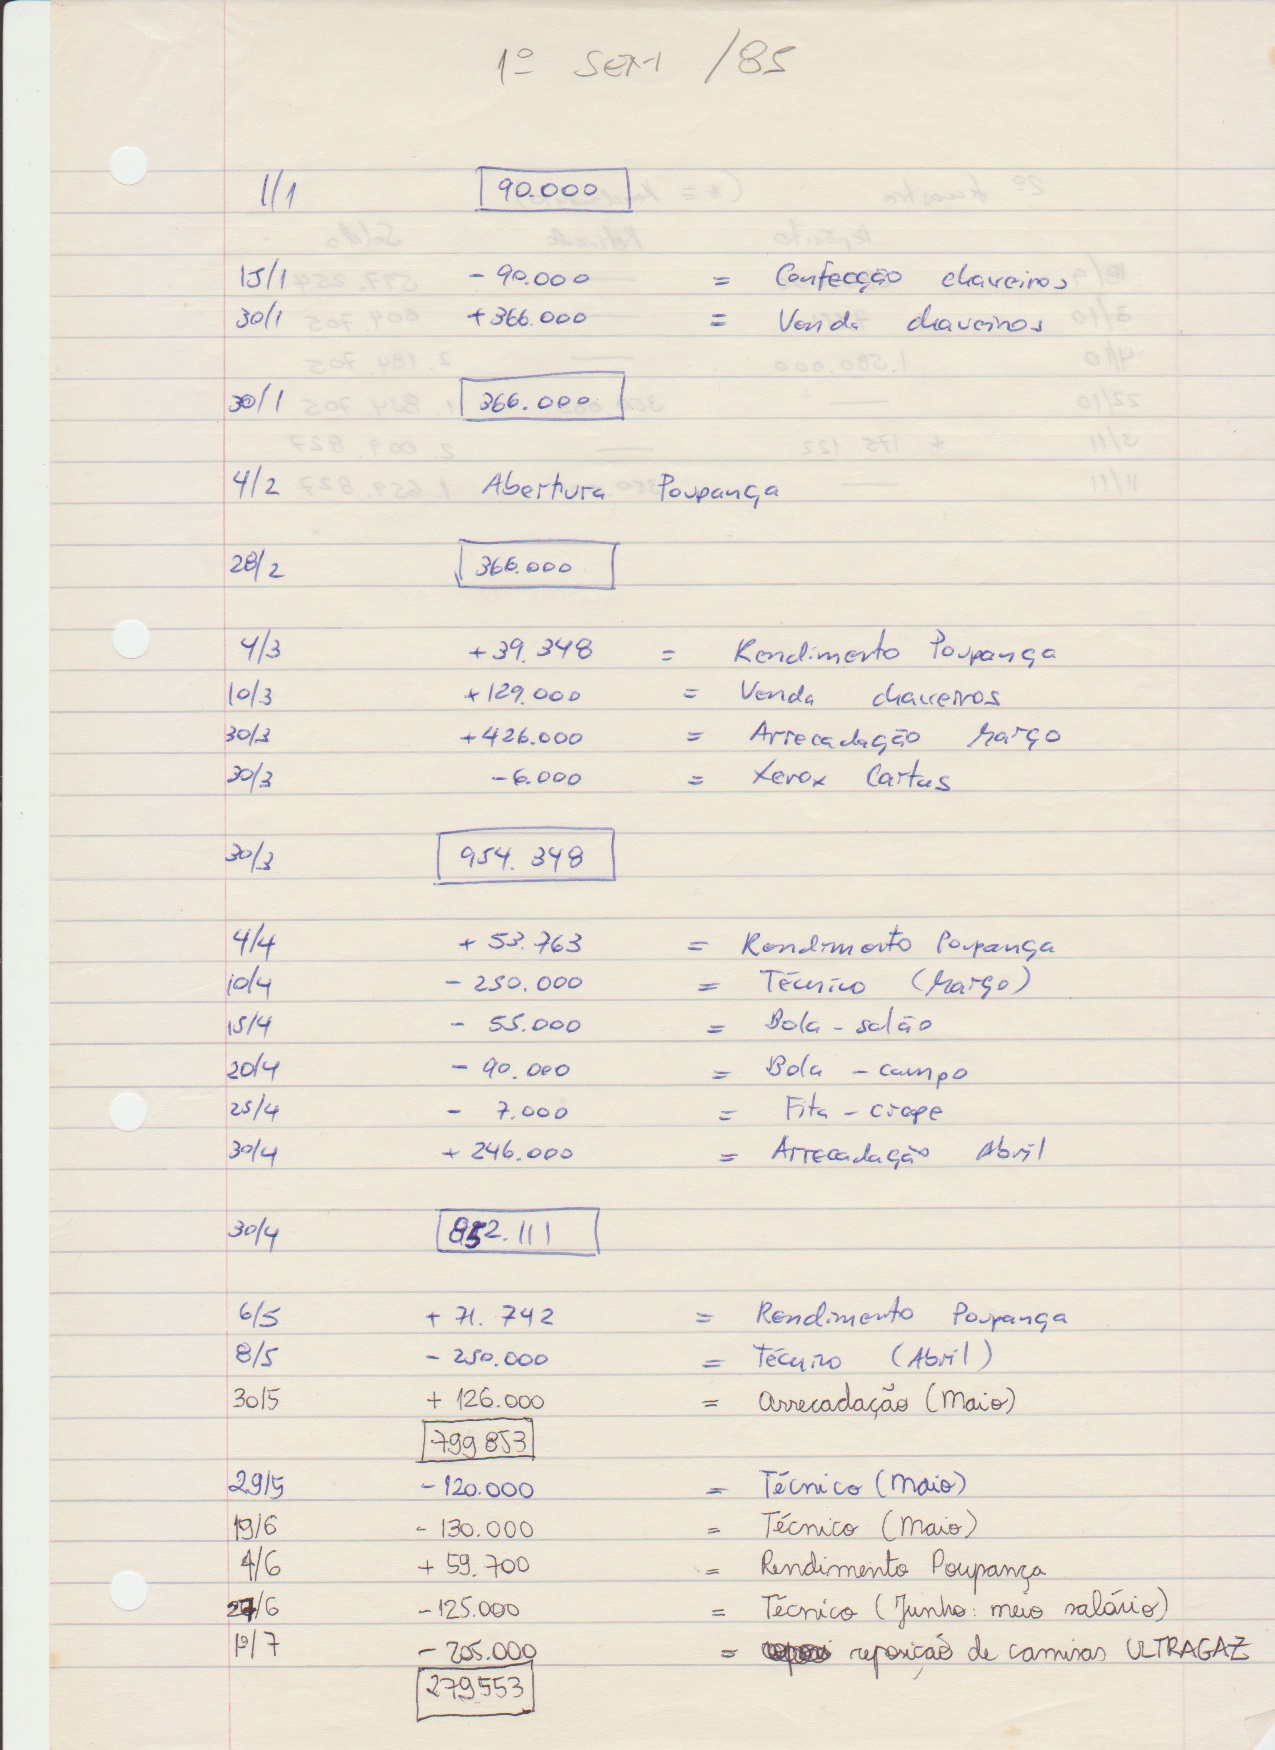 1º SEM /85
1/1 90.000
15/1 - 90.000 = Confecção chaveiros
30/1 + 366.000 = Venda chaveiros
30/1 366.000
4/2 Abertura Poupança
28/2 366.000
4/3 + 39.348 = Rendimento Poupança
10/3 + 129.000 = Venda chaveiros
30/3 + 426.000 = Arrecadação Março
30/3 - 6.000 = Xerox Cartas
30/3 954.348
4/4 + 53.763 = Rendimento Poupança
10/4 - 250.000 = Técnico (Março)
15/4 - 55.000 = Bola - salão
20/4 - 90.000 = Bola - campo
25/4 - 7.000 = Fita - crepe
30/4 + 246.000 = Arrecadação Abril
30/4 852.111
6/5 + 71.742 = Rendimento Poupança
8/5 - 250.000 = Técnico (Abril)
30/5 + 126.000 = Arrecadação (Maio)
799853
29/5 - 120.000 = Técnico (Maio)
19/6 - 130.000 = Técnico (Maio)
4/6 + 59.700 = Rendimento Poupança
27/6 - 125.000 = Técnico (Junho: meio salário)
1º/7 - 205.000 = reposição de camisas ULTRAGAZ
279553